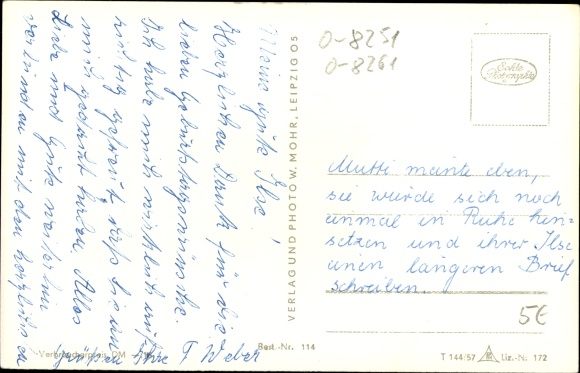 Meine gute Ilse!
Herzlichen Dank für die
lieben Geburtstagswünsche.
Ich habe mich wirklich auf-
richtig gefreut, dass Sie an
mich gedacht haben. Alles
Liebe und Gute weiterhin
verbunden mit den herzlichsten
Grüßen Ihre T. Weber
VERLAG UND PHOTO W. MOHR, LEIPZIG O 5
0-8251
0-8261
Echte
Photographie
Mutti meinte eben,
sie würde sich noch
einmal in Ruhe hin-
setzen und ihrer Ilse
einen längeren Brief
schreiben.
5€
Verbraucherpreis DM
Best.-Nr. 114
T 144/57
Liz.-Nr. 172